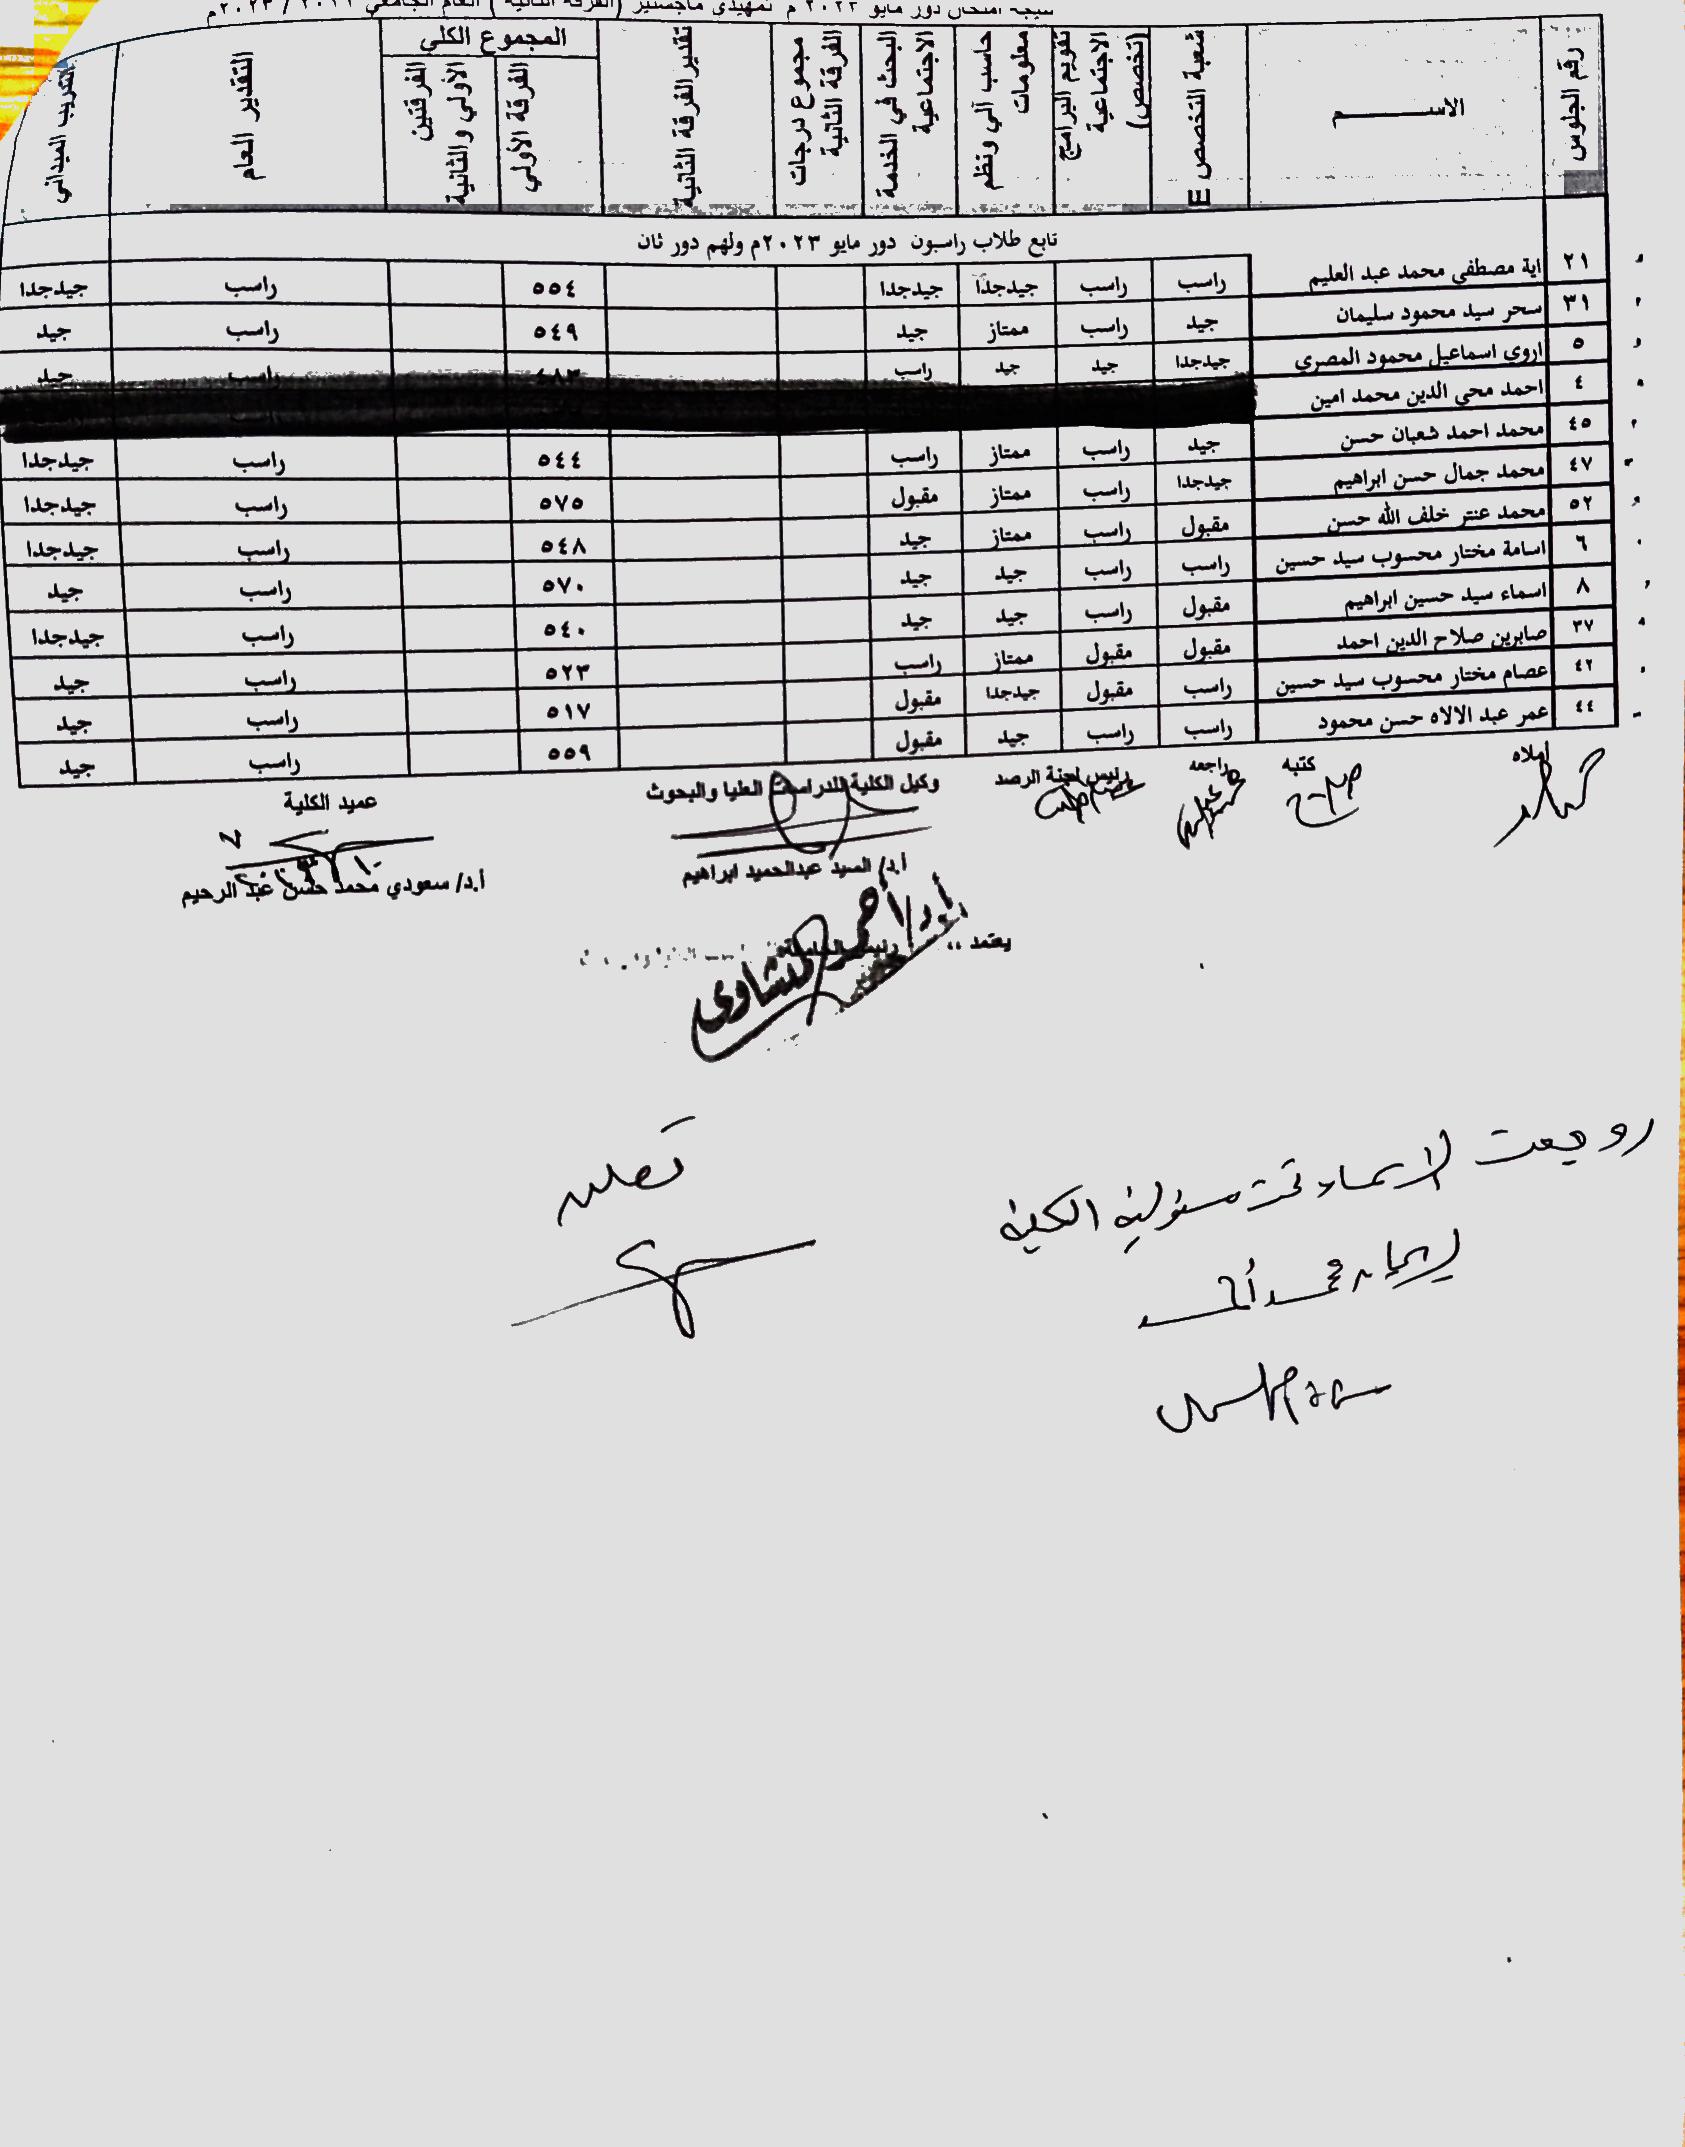 نتيجة امتحان دور مايو ٢٠٢٣ م تمهيدي ماجستير (الفرقة الثانية) العام الجامعي ٢٠٢٢ / ٢٠٢٣م
رقم الجلوس الاســـــــــم شعبة التخصص E تقويم البرامج الاجتماعية (تخصص) حاسب آلي ونظم معلومات البحث في الخدمة الاجتماعية مجموع درجات الفرقة الثانية تقدير الفرقة الثانية المجموع الكلي الفرقة الأولي الفرقتين الأولي والثانية التقدير العام التدريب الميداني
تابع طلاب راسبون دور مايو ٢٠٢٣م ولهم دور ثان
٢١ اية مصطفي محمد عبد العليم راسب راسب جيدجدا جيدجدا ٥٥٤ راسب جيدجدا
٣١ سحر سيد محمود سليمان جيد راسب ممتاز جيد ٥٤٩ راسب جيد
٥ اروي اسماعيل محمود المصري جيدجدا جيد جيد راسب ٤٨٣ راسب جيد
٤ احمد محي الدين محمد امين
٤٥ محمد احمد شعبان حسن جيد راسب ممتاز راسب ٥٤٤ راسب جيدجدا
٤٧ محمد جمال حسن ابراهيم جيدجدا راسب ممتاز مقبول ٥٧٥ راسب جيدجدا
٥٢ محمد عنتر خلف الله حسن مقبول راسب ممتاز جيد ٥٤٨ راسب جيدجدا
٦ اسامة مختار محسوب سيد حسين راسب راسب جيد جيد ٥٧٠ راسب جيد
٨ اسماء سيد حسين ابراهيم مقبول راسب جيد جيد ٥٤٠ راسب جيدجدا
٣٧ صابرين صلاح الدين احمد مقبول مقبول ممتاز راسب ٥٢٣ راسب جيد
٤٢ عصام مختار محسوب سيد حسين راسب مقبول جيدجدا مقبول ٥١٧ راسب جيد
٤٤ عمر عبد الالاه حسن محمود راسب راسب جيد مقبول ٥٥٩ راسب جيد
املاه كتبه راجعه رئيس لجنة الرصد وكيل الكلية للدراسات العليا والبحوث عميد الكلية
أ.د/ السيد عبدالحميد ابراهيم أ.د/ سعودي محمد حسن عبد الرحيم
يعتمد ،، رئيس الجامعة
أ.د/ أحمد المنشاوي
روجعت الاسماء تحت مسئولية الكلية